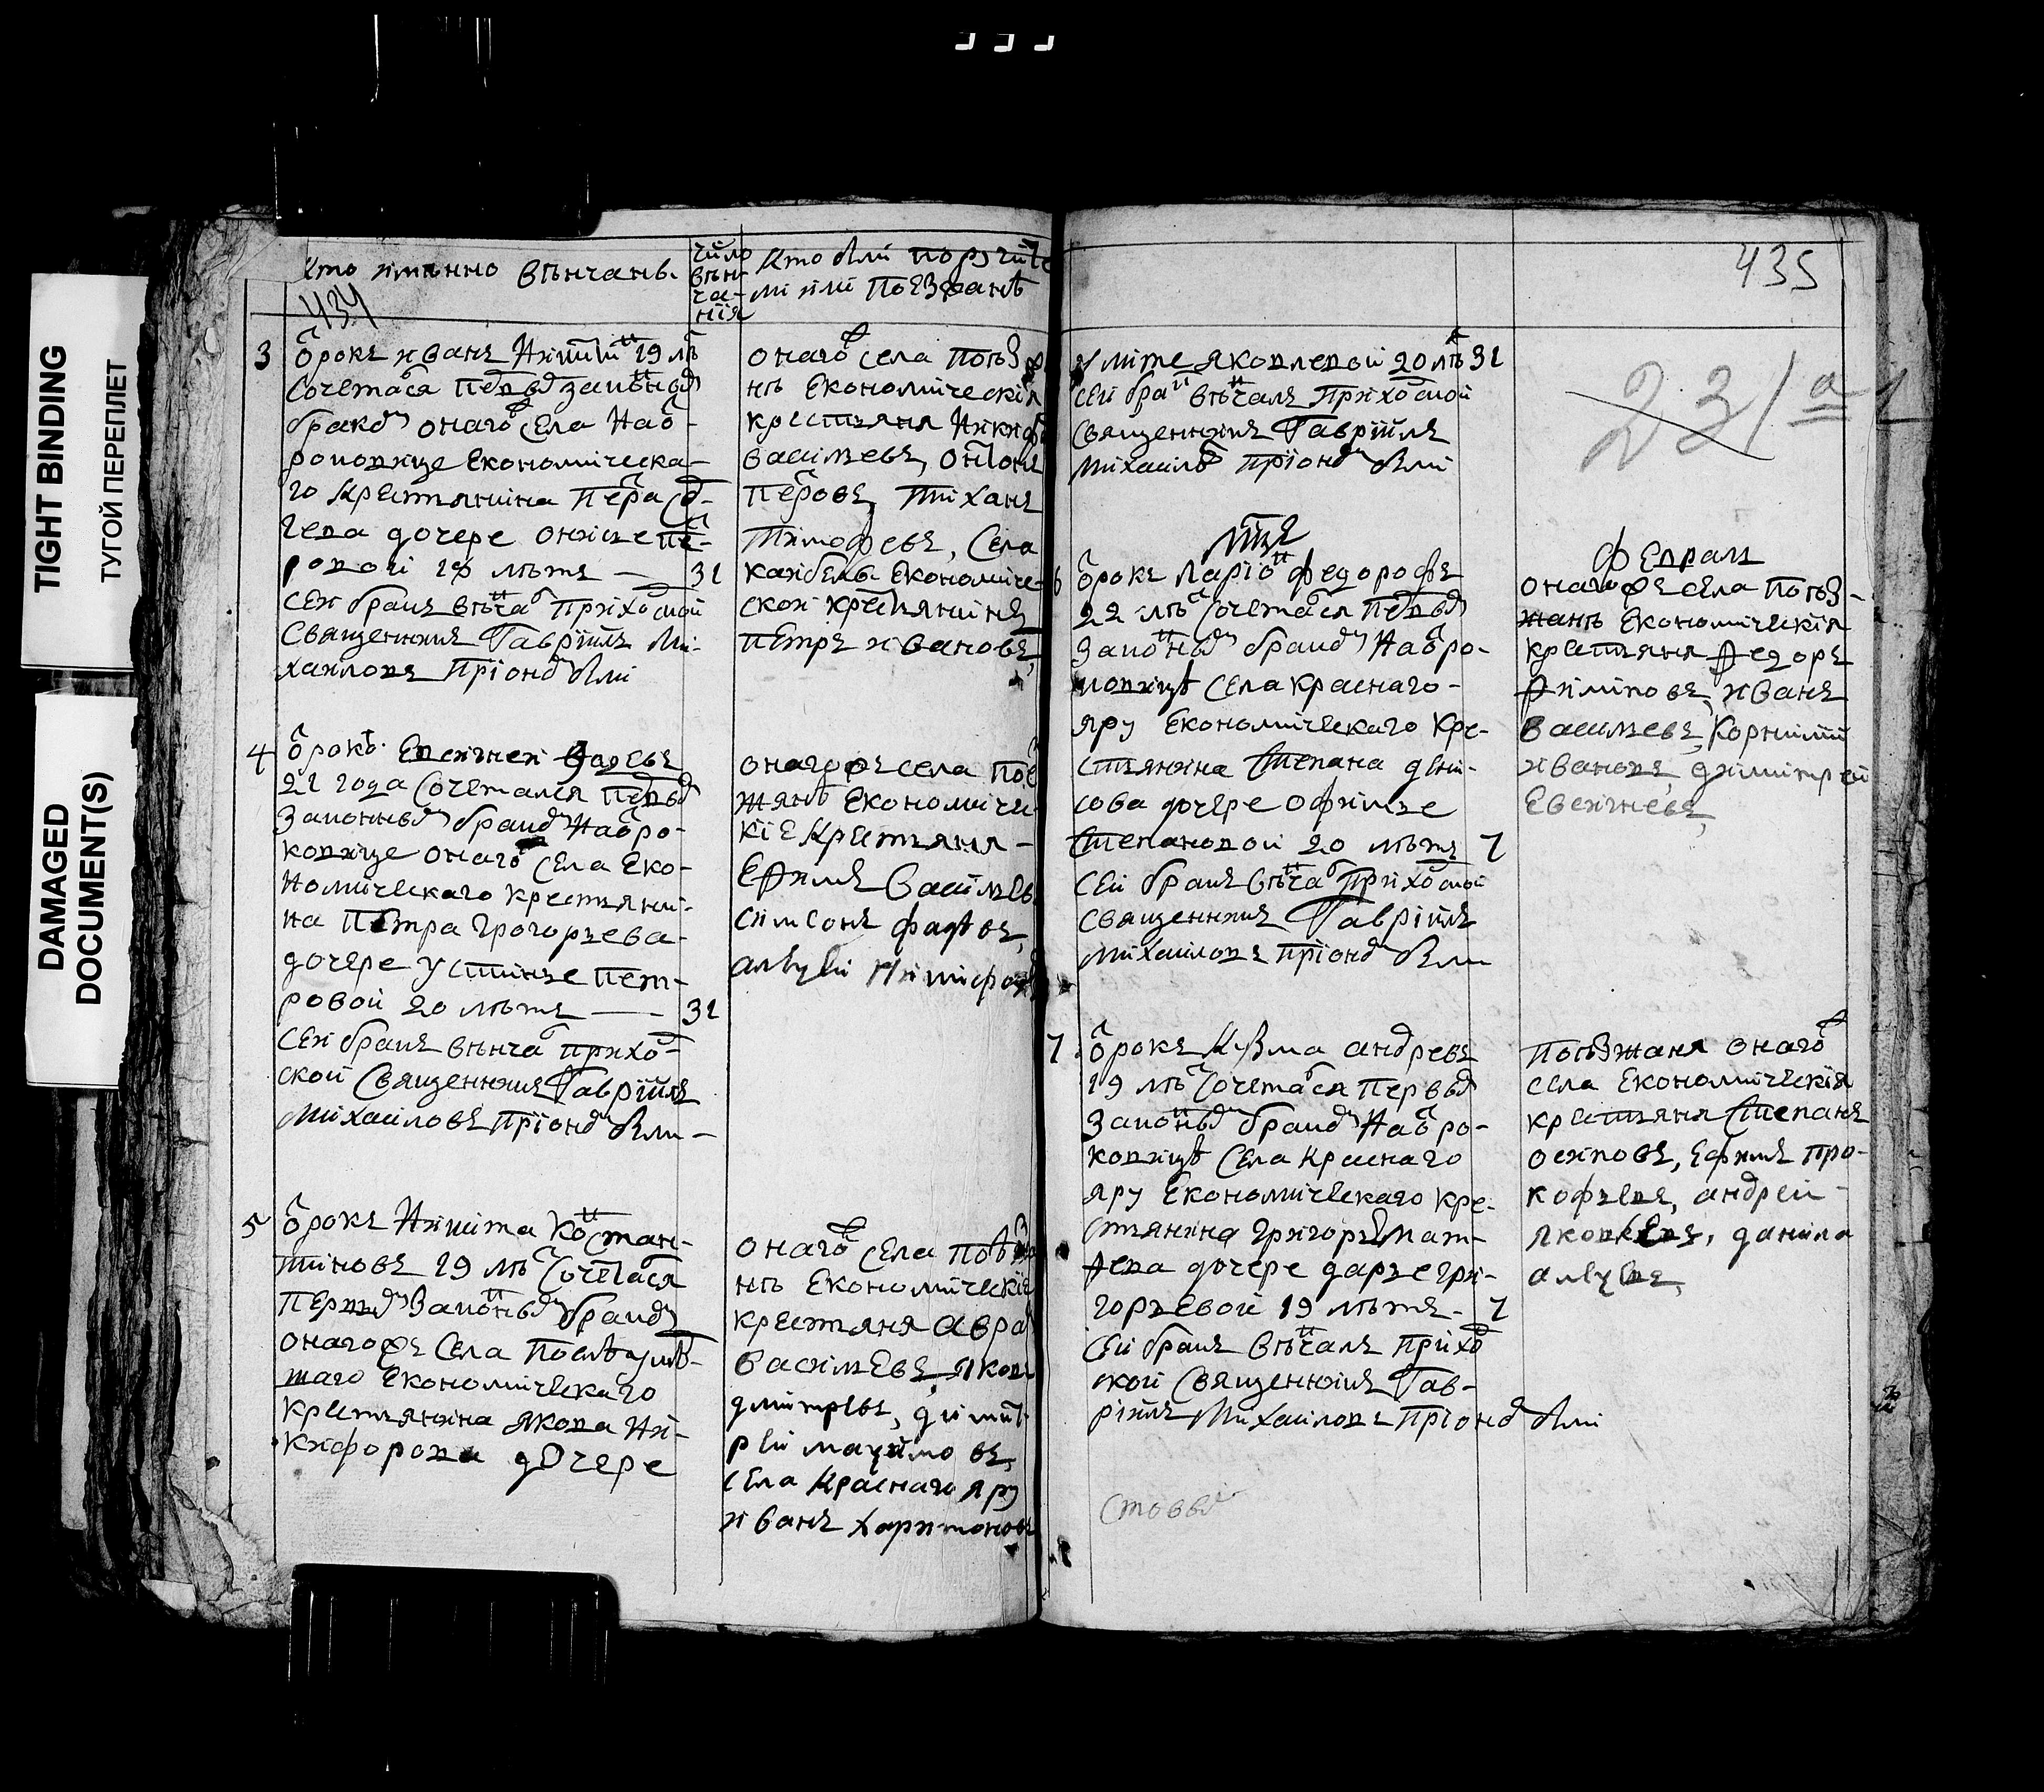 TIGHT BINDING
ТУГОЙ ПЕРЕПЛЕТ
DAMAGED
DOCUMENT(S)
Кто имянно венчаны.
434
число
вѣн-
ча-
нія
Кто были поручите
ли или поезжанѣ
3
отрокъ иванъ 19 лѣ
сочетася первы законны
бракомъ онаго села На от-
роковице Економическа-
го крестьянина Петра
дочере онисье пе-
ровой лѣтъ — 31
сей бракъ вѣнча приходской
священникъ Гавріилъ Ми-
хаиловъ при ономъ были
онаго села поѣзжа
нѣ Економическія
крестьяня
васильевъ, онтонъ
петровъ, тиханъ
тимофевъ, села
каибелы Економиче-
ской крестьянинъ
петръ ивановъ,
4
отрокъ Евсигней
21 года сочетался первы
законнымъ бракомъ На отро-
ковице онаго села Еко-
номическаго крестьяни-
на Петра григорьева
дочере устинье пет-
ровой 20 лѣтъ — 31
сей бракъ вѣнча прихо-
ской священникъ Гавріилъ
Михаиловъ при ономъ были
онагожъ села пое
жанѣ Економичес
кіе крестьяня
Ефимъ васильевъ
симсонъ фадѣевъ,
алексѣй
5
отрокъ Никита Костан-
тиновъ 19 лѣ сочетася
первымъ законнымъ бракомъ
онагожъ села
Економическаго
крестьянина якова Ни-
кифорова дочере
онаго села поѣзжа
нѣ Економическія
крестьяня
васильевъ, яковъ
дмитревъ, димит-
рей максимовъ,
села Краснаго яру
иванъ харитоновъ
435
улите яковлевой 20 лѣ 31
сей бракъ вѣнчалъ приходской
священникъ Гавріилъ
михаиловъ при ономъ были
231 а
мца
февраля
6
отрокъ Ларіонъ федорофъ
22 лѣ сочетася первы
законны бракомъ На отро-
ковицѣ села краснаго-
яру Економическаго кре-
стьянина Степана дени-
сова дочере офимье
степановой 20 лѣтъ 7
сей бракъ вѣнча приходской
священникъ Гавріилъ
михаиловъ при ономъ были
онагожъ села поѣз-
жанѣ Економическія
крестьяня Федоръ
Филиповъ, иванъ
васильевъ, Корнилій
ивановъ, димитрей
Евсигнеевъ,
7
отрокъ Кузма андревъ
19 лѣ сочетася первы
законны бракомъ На отро-
ковицѣ села Краснаго
яру Економическаго кре-
стьянина григорья мат-
фева дочере дарье гри-
горьевой 19 лѣтъ - 7
сей бракъ вѣнчалъ прихо
ской священникъ Гав-
ріилъ Михаиловъ при ономъ были
поѣзжаня онаго
села Економическія
крестьяня Степанъ
осиповъ, Ефимъ про-
кофьевъ, андрей
яковлевъ, данила
алексѣевъ,